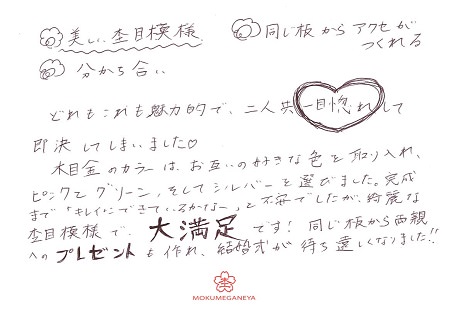 美しい杢目模様
同じ板からアクセが
つくれる
分かち合い
どれもこれも魅力的で、二人共一目惚れして
即決してしまいました♡
木目金のカラーは、お互いの好きな色を取り入れ、
ピンクとグリーン、そしてシルバーを選びました。完成
まで「キレイにできているかなー」と不安でしたが、綺麗な
杢目模様で、大満足です!同じ板から両親
へのプレゼントも作れ、結婚式が待ち遠しくなりました!!
MOKUMEGANEYA